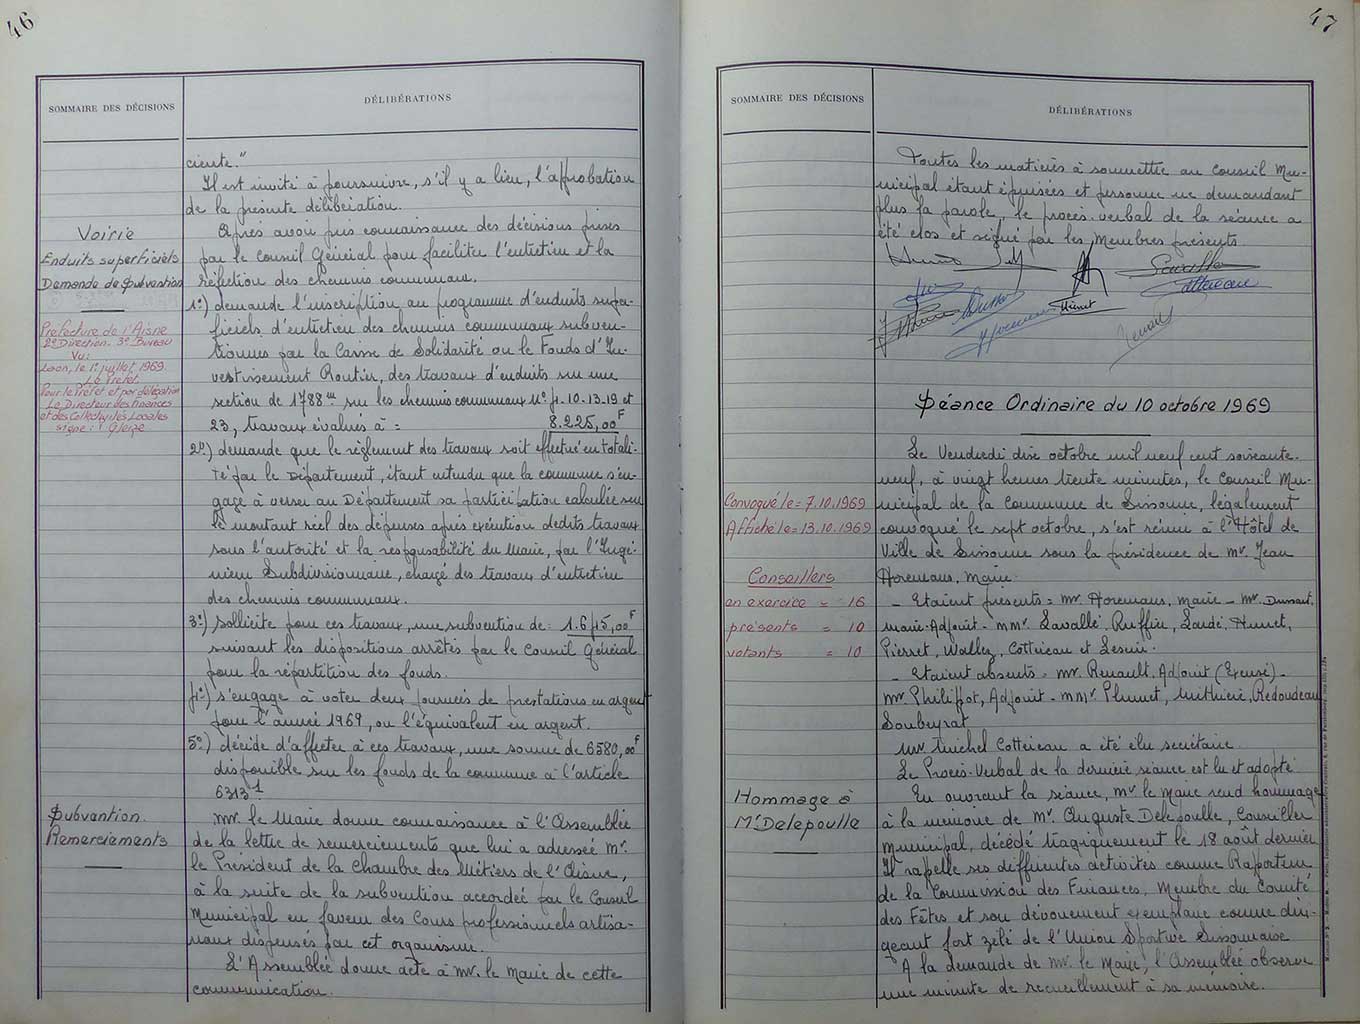 46
SOMMAIRE DES DÉCISIONS
DÉLIBÉRATIONS
Voirie
Enduits superficiels
Demande de Subvention
Préfecture de l'Aisne
2e Direction. 3e Bureau
Vu:
Laon, le 1er juillet 1969.
Le Préfet.
Pour le Préfet et par délégation
Le Directeur des finances
et des Collectivités Locales
signé:
Subvention.
Remerciements
ciente."
Il est invité à poursuivre, s'il y a lieu, l'approbation
de la présente délibération.
Après avoir pris connaissance des décisions prises
par le Conseil Général pour faciliter l'entretien et la
réfection des chemins communaux.
1°) demande l'inscription au programme d'enduits super-
ficiels d'entretien des chemins communaux subven-
tionnés par la Caisse de Solidarité ou le Fonds d'In-
vestissement Routier, des travaux d'enduits sur une
section de 1788 m sur les chemins communaux Nos 4-10-13-19 et
23, travaux évalués à = 8.225,00F
2°) demande que le règlement des travaux soit effectué en totali-
té par le Département, étant entendu que la commune s'en-
gage à verser au Département sa participation calculée sur
le montant réel des dépenses après exécution desdits travaux
sous l'autorité et la responsabilité du Maire, par l'Ingé-
nieur Subdivisionnaire, chargé des travaux d'entretien
des chemins communaux.
3°) sollicite pour ces travaux, une subvention de: 1.645,00F
suivant les dispositions arrêtés par le Conseil Général
pour la répartition des fonds.
4°) s'engage à voter deux journées de prestations en argent
pour l'année 1969, ou l'équivalent en argent.
5°) décide d'affecter à ces travaux, une somme de 6580,00F
disponible sur les fonds de la commune à l'article
6313 1
Mr. le Maire donne connaissance à l'Assemblée
de la lettre de remerciements que lui a adressée Mr.
le Président de la Chambre des Métiers de l'Aisne,
à la suite de la subvention accordée par le Conseil
Municipal en faveur des Cours professionnels artisa-
naux dispensés par cet organisme.
L'Assemblée donne acte à Mr. le Maire de cette
communication.
47
SOMMAIRE DES DÉCISIONS
DÉLIBÉRATIONS
Toutes les matières à soumettre au Conseil Mu-
nicipal étant épuisées et personne ne demandant
plus la parole, le procès-verbal de la séance a
été clos et signé par les Membres présents
Séance Ordinaire du 10 octobre 1969
Convoqué le = 7.10.1969
Affiché le = 13.10.1969
Conseillers
en exercice = 16
présents = 10
votants = 10
Le Vendredi dix octobre mil neuf cent soixante-
neuf, à vingt heures trente minutes, le Conseil Mu-
nicipal de la Commune de Sissonne, légalement
convoqué le sept octobre, s'est réuni à l'Hôtel de
Ville de Sissonne sous la présidence de Mr. Jean
Horemans, Maire.
- Etaient présents = Mr. Horemans, Maire - Mr. Dussart,
Maire-Adjoint - MMr. Lavalle, Ruffier, Lardé, Hunet,
Pierret, Wallez, Cottereau et
- Etaient absents = Mr. Renault, Adjoint (Excusé) -
Mr. Philippot, Adjoint - MMr. Plunet, Redoudeau
Soubeyrat
Mr. Michel Cottereau a été élu secrétaire.
Le Procès-Verbal de la dernière séance est lu et adopté
Hommage à
Mr Delepoulle
En ouvrant la séance, Mr le Maire rend hommage
à la mémoire de Mr. Auguste Delepoulle, Conseiller
Municipal, décédé tragiquement le 18 août dernier
Il rappelle ses différentes activités comme Rapporteur
de la Commission des Finances, Membre du Comité
des Fêtes et son dévouement exemplaire comme diri-
geant fort zélé de l'Union Sportive Sissonnaise
A la demande de Mr. le Maire, l'Assemblée observe
une minute de recueillement à sa mémoire.